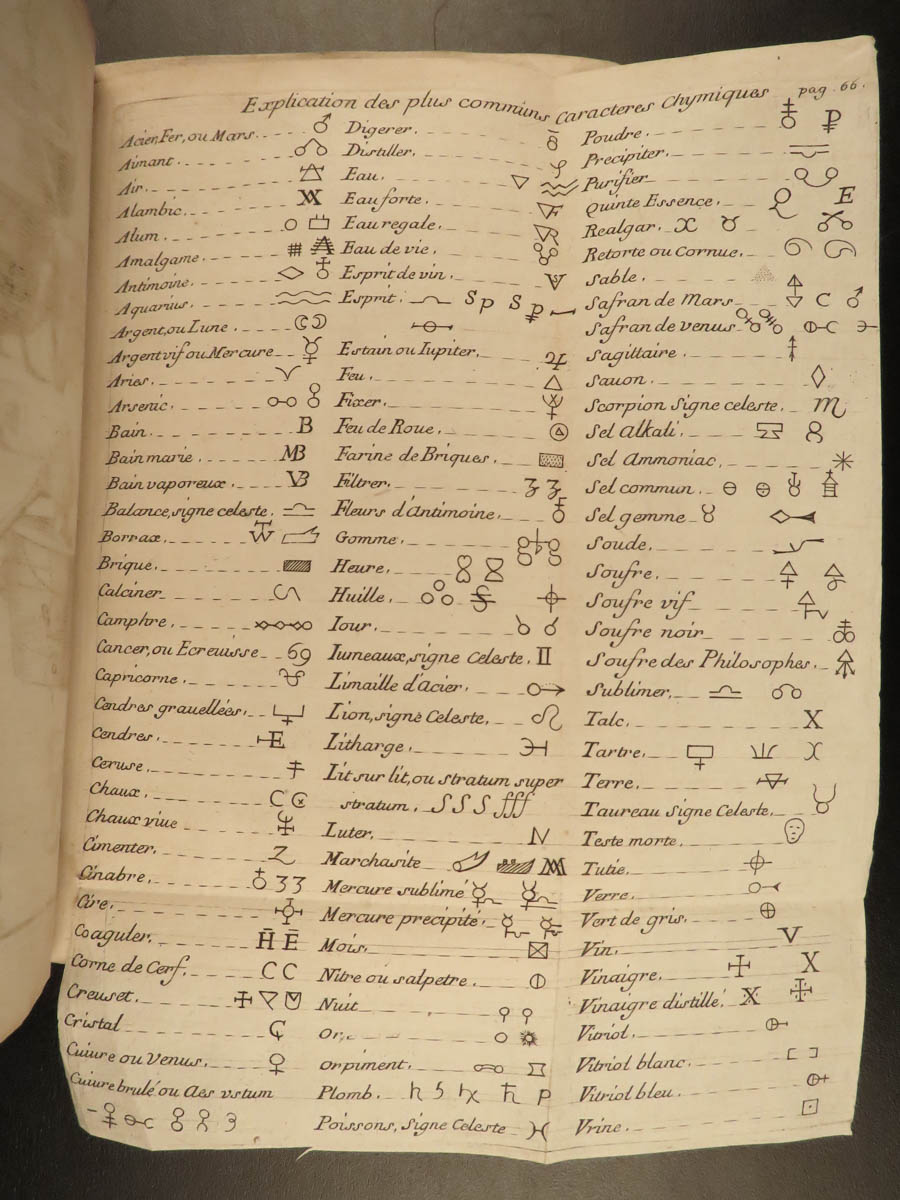 Explication des plus communs Caracteres Chymiques pag. 66.
Acier, Fer, ou Mars.
Aimant.
Air.
Alambic.
Alum.
Amalgame.
Antimoine.
Aquarius.
Argent, ou Lune.
Argent vif ou Mercure
Aries.
Arsenic.
Bain.
Bain marie.
Bain vaporeux.
Balance, signe celeste.
Borrax.
Brique.
Calciner
Camphre.
Cancer, ou Ecreuisse 69
Capricorne.
Cendres grauellées.
Cendres.
Ceruse.
Chaux.
Chaux viue
Cimenter.
Cinabre.
Cire.
Coaguler.
Corne de Cerf. C C
Creuset.
Cristal
Cuiure ou Venus.
Cuiure brulé ou Aes vstum
Digerer.
Distiller.
Eau.
Eau forte.
Eau regale.
Eau de vie.
Esprit de vin.
Esprit. Sp
Estain ou Iupiter.
Feu.
Fixer.
Feu de Roue.
Farine de Briques.
Filtrer.
Fleurs d'Antimoine.
Gomme.
Heure.
Huille.
Iour.
Iumeaux, signe Celeste. II
Limaille d'Acier.
Lion, signe Celeste.
Litharge.
Lit sur lit, ou stratum super
stratum. SSS fff
Luter.
Marchasite
Mercure sublimé
Mercure precipité.
Mois.
Nitre ou salpetre.
Nuit
Or.
Orpiment.
Plomb.
Poissons, Signe Celeste
Poudre.
Precipiter.
Purifier
Quinte Essence. E
Realgar.
Retorte ou Cornue.
Sable.
Safran de Mars
Safran de venus
Sagittaire.
Sauon.
Scorpion Signe celeste.
Sel Alkali.
Sel Ammoniac.
Sel commun.
Sel gemme
Soude.
Soufre.
Soufre vif
Soufre noir
Soufre des Philosophes.
Sublimer.
Talc. X
Tartre.
Terre.
Taureau Signe Celeste.
Teste morte.
Tutie.
Verre.
Vert de gris.
Vin. V
Vinaigre. X
Vinaigre distillé.
Vitriol.
Vitriol blanc.
Vitriol bleu.
Vrine.